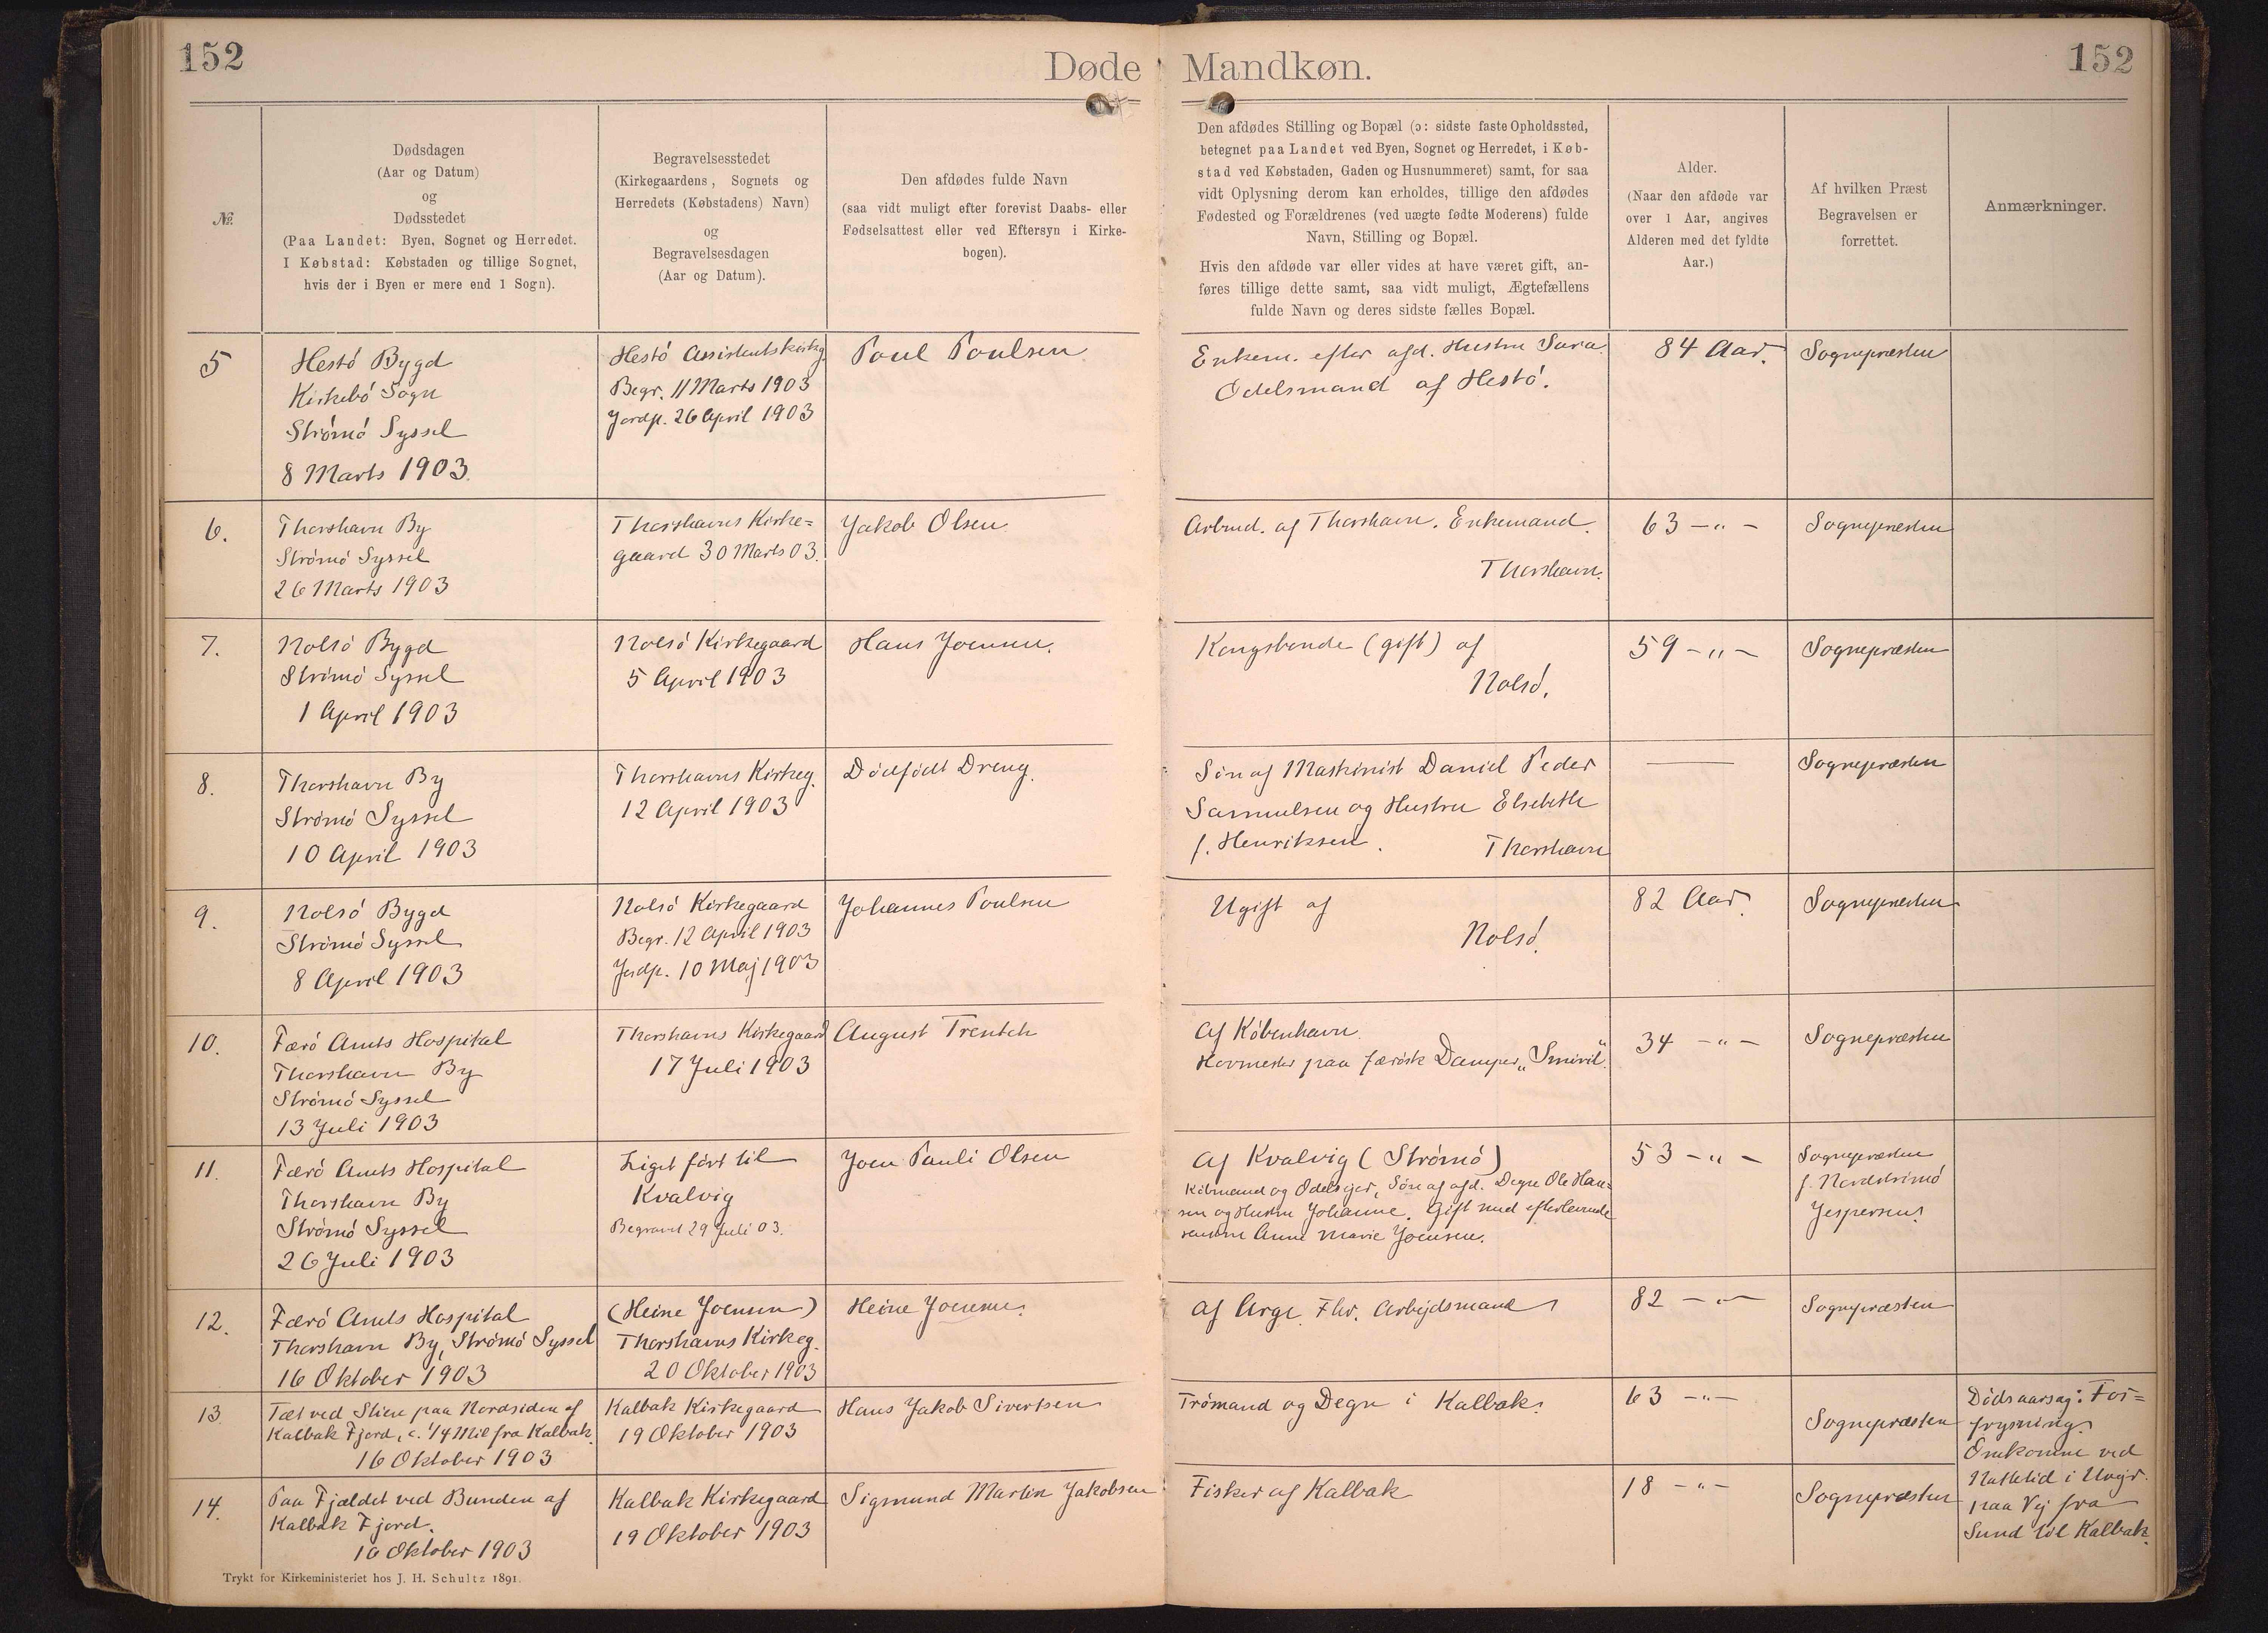 152
Døde
Mandkøn.
152
№
Dødsdagen
(Aar og Datum)
og
Dødsstedet
(Paa Landet: Byen, Sognet og Herredet.
I Købstad: Købstaden og tillige Sognet,
hvis der i Byen er mere end 1 Sogn).
Begravelsesstedet
(Kirkegaardens, Sognets og
Herredets (Købstadens) Navn)
og
Begravelsesdagen
(Aar og Datum).
Den afdødes fulde Navn
(saa vidt muligt efter forevist Daabs- eller
Fødselsattest eller ved Eftersyn i Kirke-
bogen).
Den afdødes Stilling og Bopæl (ɔ: sidste faste Opholdssted,
betegnet paa Landet ved Byen, Sognet og Herredet, i Køb-
stad ved Købstaden, Gaden og Husnummeret) samt, for saa
vidt Oplysning derom kan erholdes, tillige den afdødes
Fødested og Forældrenes (ved uægte fødte Moderens) fulde
Navn, Stilling og Bopæl.
Hvis den afdøde var eller vides at have været gift, an-
føres tillige dette samt, saa vidt muligt, Ægtefællens
fulde Navn og deres sidste fælles Bopæl.
Alder.
(Naar den afdøde var
over 1 Aar, angives
Alderen med det fyldte
Aar.)
Af hvilken Præst
Begravelsen er
forrettet.
Anmærkninger.
5
Hestö Bygd
Kirkebö Sogn
Strömö Syssel
8 Marts 1903.
Hestö Assistentskirkg.
Begr. 11 Marts 1903
Jordp. 26 April 1903
Poul Poulsen
Enkem. efter afd. Hustru Sara.
Odelsmand af Hestö.
84 Aar.
Sognepræsten
6.
Thorshavn By
Strömö Syssel
26 Marts 1903
Thorshavns Kirke=
gaard 30 Marts 03.
Jakob Olsen
Arbmd. af Thorshavn. Enkemand.
Thorshavn.
63 -"-
Sognepræsten
7.
Nolsö Bygd
Strömö Syssel
1 April 1903
Nolsö Kirkegaard
5 April 1903
Hans Joensen.
Kongsbonde (gift) af
Nolsö.
59 -"-
Sognepræsten
8.
Thorshavn By
Strömö Syssel
10 April 1903
Thorshavns Kirkeg.
12 April 1903
Dödfödt Dreng.
Sön af Maskinist Daniel Peder
Samuelsen og Hustru Elsebeth
f. Henriksen. Thorshavn
Sognepræsten
9.
Nolsö Bygd
Strömö Syssel
8 April 1903
Nolsö Kirkegaard
Begr. 12 April 1903
Jordp. 10 Maj 1903
Johannes Poulsen
Ugift af
Nolsö.
82 Aar.
Sognepræsten
10.
Færö Amts Hospital
Thorshavn By
Strömö Syssel
13 Juli 1903
Thorshavns Kirkegaard
17 Juli 1903
August Trentch
Af Köbenhavn.
Hovmester paa færösk Damper „Smiril".
34 -"-
Sognepræsten
11.
Færö Amts Hospital
Thorshavn By
Strömö Syssel
26 Juli 1903
Liget fört til
Kvalvig
Begravet 29 Juli 03.
Joen Pauli Olsen
Af Kvalvig (Strömö)
Köbmand og Odelsejer, Sön af afd. Degn Ole Han=
sen og Hustru Johanne. Gift med efterlevende
Anne Marie Joensen.
53 -"-
Sognepræsten
f. Nordströmö
Jespersen
12.
Færö Amts Hospital
Thorshavn By, Strömö Syssel
16 Oktober 1903
(Heine Joensen)
Thorshavns Kirkeg.
20 Oktober 1903
Heine Joensen.
af Arge. Fhv. Arbejdsmand
82 -"-
Sognepræsten
13.
Tæt ved Stien paa Nordsiden af
Kalbak Fjord, c. 1/4 Mil fra Kalbak.
16 Oktober 1903
Kalbak Kirkegaard
19 Oktober 1903
Hans Jakob Sivertsen
Trömand og Degn i Kalbak.
63 -"-
Sognepræsten
Dödsaarsag: For=
frysning.
Omkomne ved
Nattetid i Uvejr.
paa Vej fra
Sund til Kalbak.
14.
Paa Fjældet ved Bunden af
Kalbak Fjord.
16 Oktober 1903
Kalbak Kirkegaard
19 Oktober 1903
Sigmund Martin Jakobsen
Fisker af Kalbak
18 -"-
Sognepræsten
Trykt for Kirkeministeriet hos J. H. Schultz 1891.